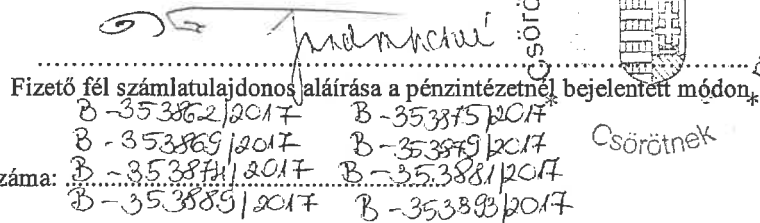 Csörö
Fizető fél számlatulajdonos aláírása a pénzintézetnél bejelentett módon*
B-353862/2017 B-353875/2017
B-353869/2017 B-353879/2017
záma: B-353874/2017 B-353881/2017
B-353889/2017 B-353893/2017
Csörötnek